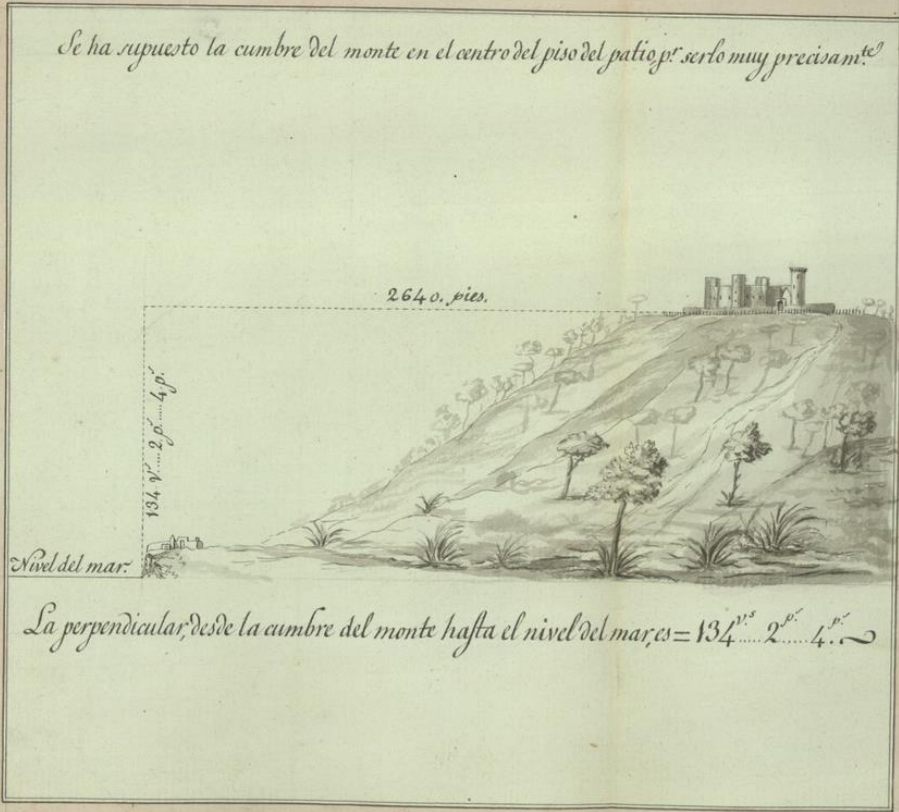 Se ha supuesto la cumbre del monte en el centro del piso del patio, pr. serlo muy precisamte.
2640. pies.
134 vs.....2 ps.....4 ps.
Nivel del mar.
La perpendicular, desde la cumbre del monte hasta el nivel del mar, es = 134 vs.....2 ps.....4. ps.